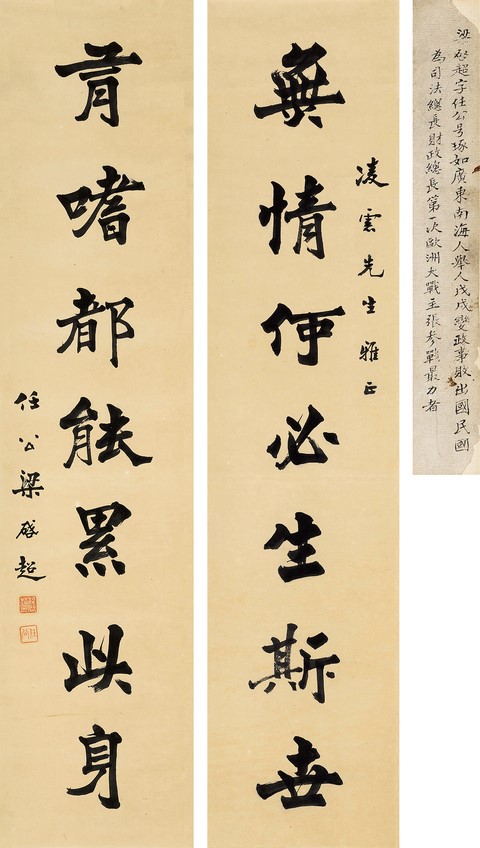 梁啟超字任公号琢如廣東南海人舉人戊戌變政事敗出國民國
為司法總長財政總長第一次歐洲大戰主張参戰最力者
凌雲先生雅正
無情何必生斯世
有嗜都能累此身
任公梁啟超